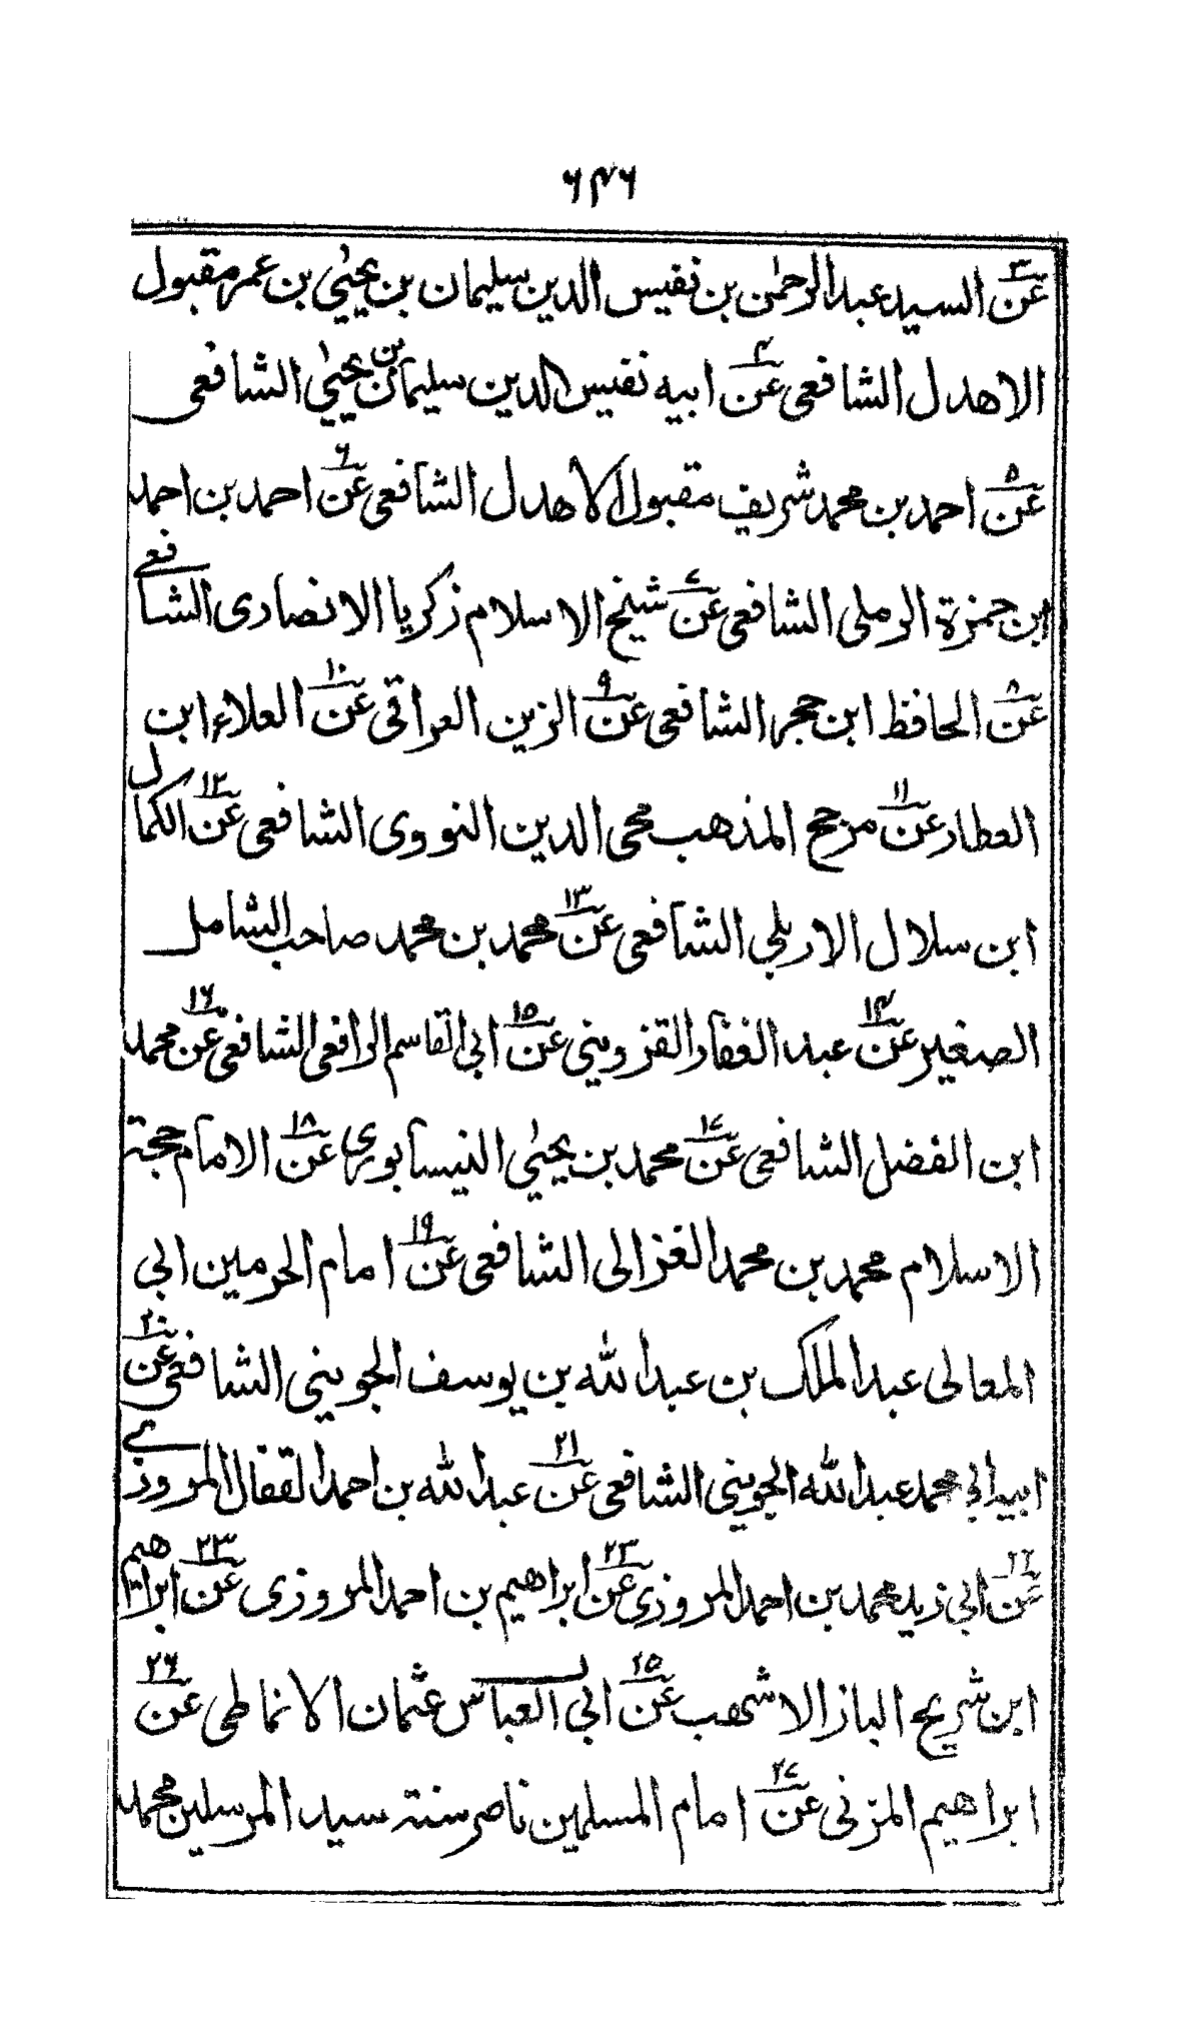 ۶۴۶
عن۳ السید عبدالرحمٰن بن نفیس الدین سلیمان بن یحییٰ بن عمر مقبول
الاهدل الشافعی عن۴ ابیه نفیس الدین سلیمان بن یحییٰ الشافعی
عن۵ احمد بن محمد شریف مقبول الاهدل الشافعی عن۶ احمد بن احمد
ابن حمزة الرملی الشافعی عن۷ شیخ الاسلام زکریا الانصاری الشافعی
عن۸ الحافظ ابن حجر الشافعی عن۹ الزین العراقی عن۱۰ العلاء ابن
العطار عن۱۱ مرجح المذهب محی الدین النووی الشافعی عن۱۲ الکمال
ابن سلال الاربلی الشافعی عن۱۳ محمد بن محمد صاحب الشامل
الصغیر عن۱۴ عبد الغفار القزوینی عن۱۵ ابی القاسم الرافعی الشافعی عن۱۶ محمد
ابن الفضل الشافعی عن۱۷ محمد بن یحییٰ النیسابوری عن۱۸ الامام حجة
الاسلام محمد بن محمد الغزالی الشافعی عن۱۹ امام الحرمین ابی
المعالی عبد الملک بن عبد الله بن یوسف الجوینی الشافعی عن۲۰
ابیه ابی محمد عبد الله الجوینی الشافعی عن۲۱ عبد الله بن احمد القفال المروزی
عن۲۲ ابی زید محمد بن احمد المروزی عن۲۳ ابراهیم بن احمد المروزی عن۲۳ ابراهیم
ابن شریح الباز الاشهب عن۲۵ ابی العباس عثمان الانماطی عن۲۶
ابراهیم المزنی عن۲۷ امام المسلمین ناصر سنة سید المرسلین محمد